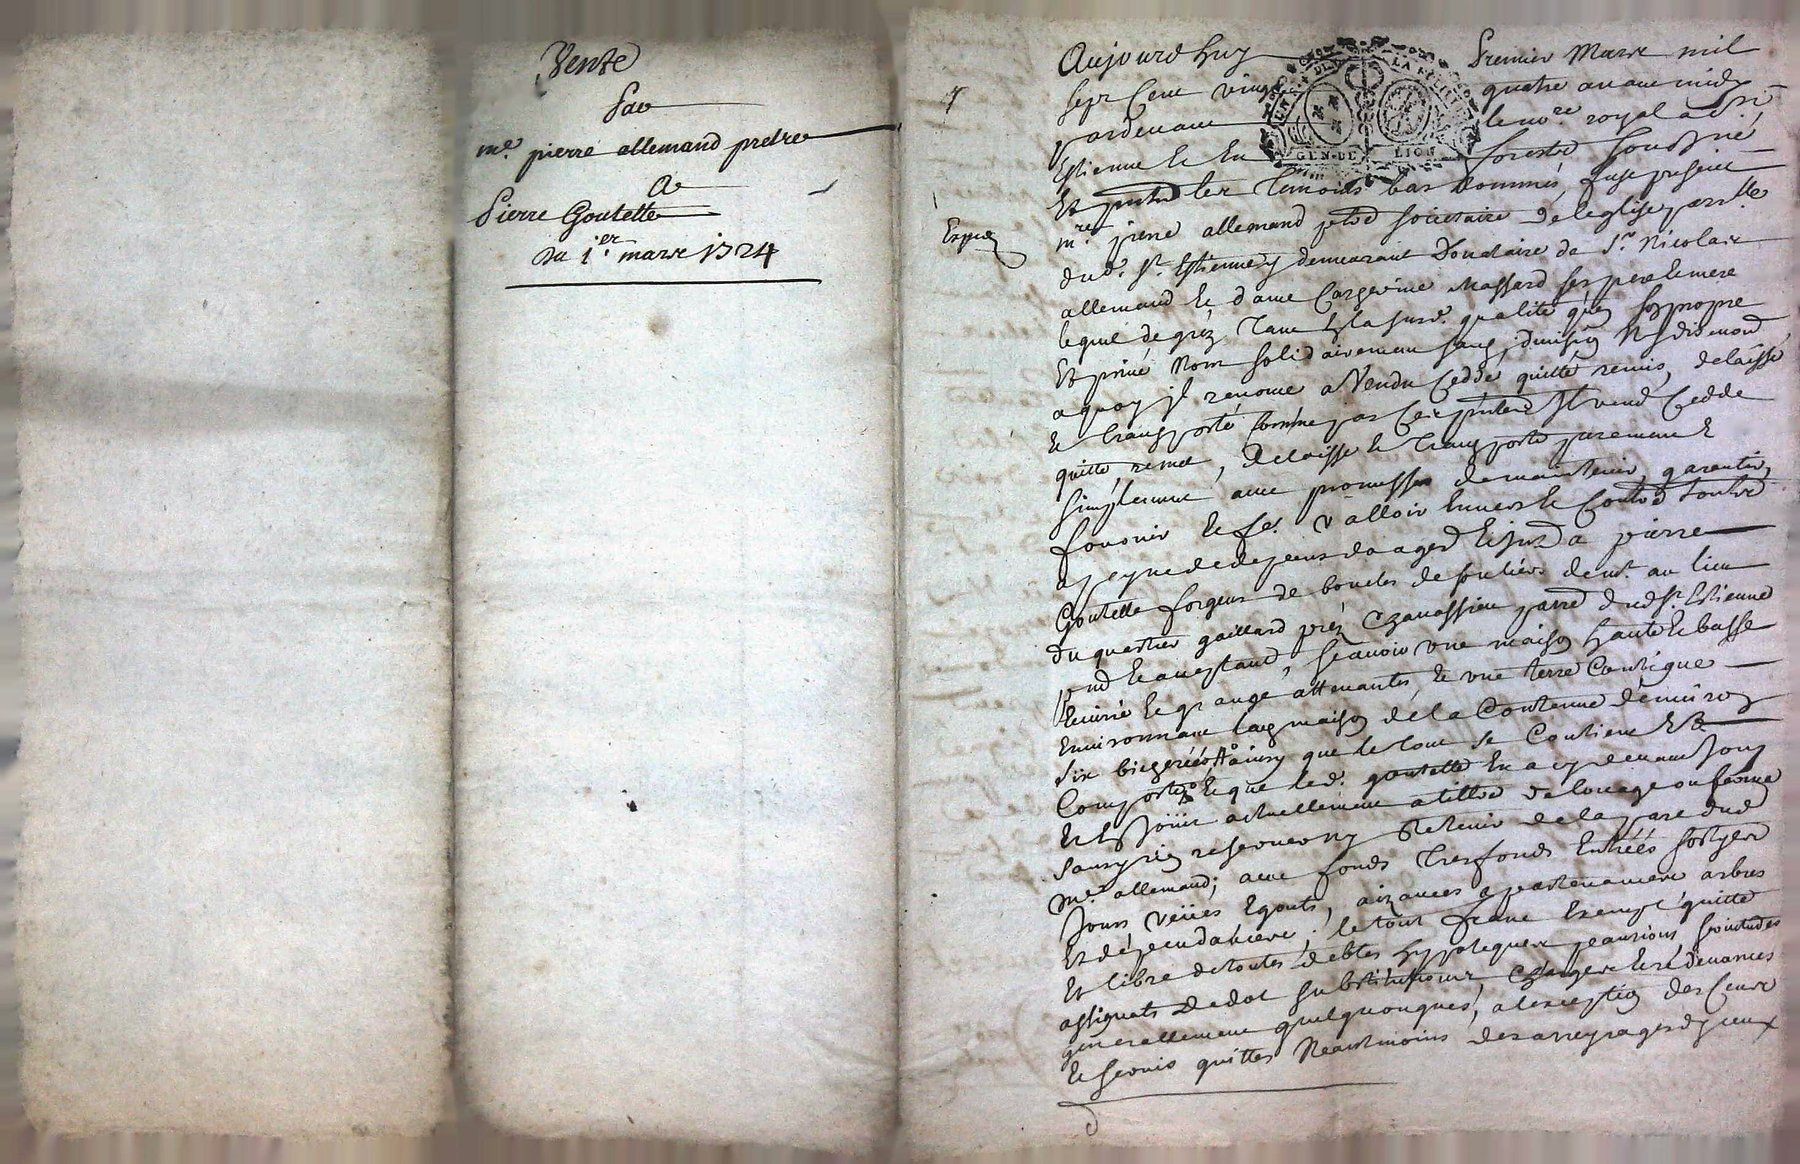 Vente
Par
me. pierre allemand pretre
A
Pierre Goutelle
Du 1.er mars 1724
Expié
Aujourd huy Premier Mars mil
sept Cent vingt quatre avant midy
pardevant le no.re royal a St
Estienne et En forestz soussigné
Et présents les Temoins bas nommés, fust present
m.re pierre allemand ptre societaire de leglise parr.lle
dud. St. Estienne y demeurant Donataire de S.r Nicolas
allemand et dame Massard ses pere et mere
lequel de gré, Tant En lad. qualité qu'en son propre
Et privé Nom solidairement sans division Ny dis
a quoy jl renonce a Vendu Ceddé quitté remis, delaissé
et Transporté comme par Ces présentes Il vend Cedde
quitte, remet, delaisse et Transporte purement &
simplement avec promesse de maintenir, garentir,
fournir et fe. valloir Envers et Contre toutes
a peyne de depens doages a pierre
Goutelle forgeur de boucles de souliers dem.t au lieu
du quartier gaillard près Chavassieu parr.e dud. St. Estienne
pnt et acceptant, scavoir une maison haute et basse
Ecurie et grange attenantes, et une terre Contigue
Environnant lad maison de la Contenue d'environ
six bicherées ainsy que le tout se Contient Et
Comporte Et que led. goutelle En a cy devant Jouy
Et En Jouit actuellement a tittre de louage ou ferme
sans y rien reserver ny Retenir de la part dud
m.e allemand; avec fonds Tresfonds Entrées sorties
Jours veües Egouts, aizances apartenances arbres
Et dépendances; le tout franc Exempt quitte
Et libre de toutes debtes hypoteques pensions,
assignats de dot substitutions, charges et redevances
generallement quelquonques, a lexception des Cens
Et servis quittes Neantmoins des arreyrages d'yceux
GEN. DE LION